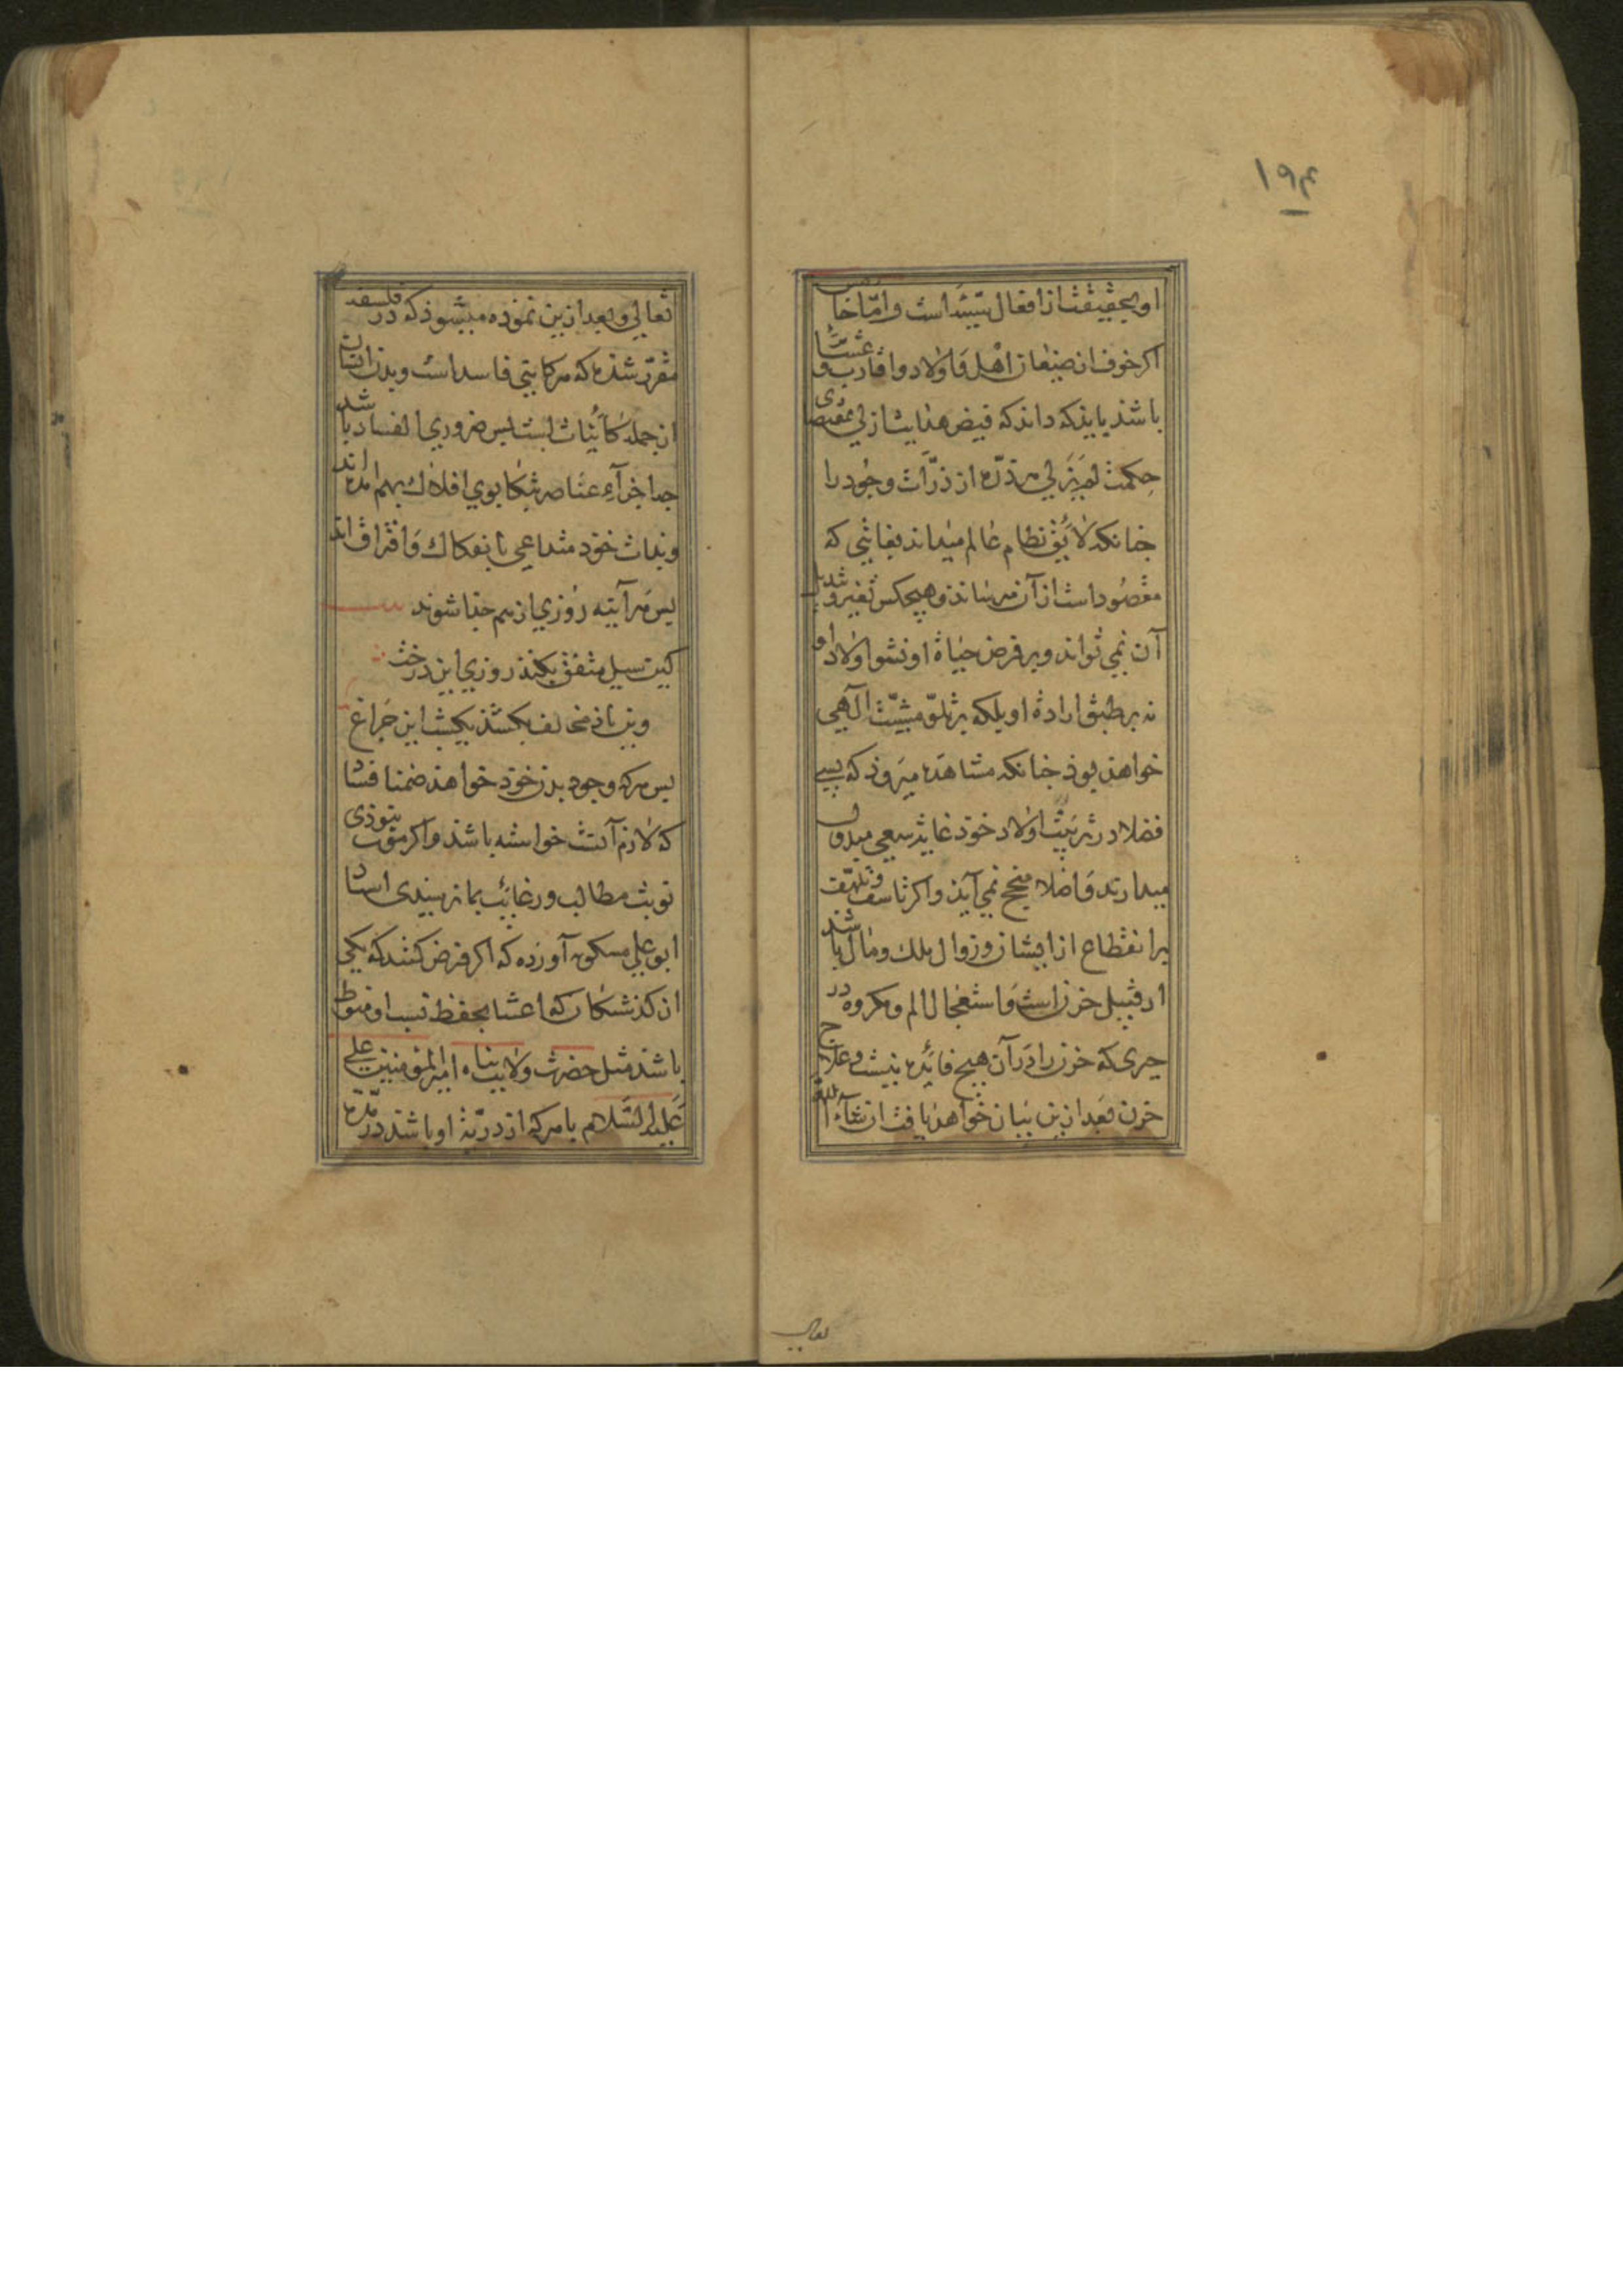 ۱۹۴
او بحقیقت از افعال سیئه است و امّا خامس
اکر خوف از ضیعان اهل و اولاد و اقارب و عشایر
باشد باید که داند که فیض هدایت ازلی بمقتضی
حکمت لم یزلی هر ذرّه از ذرّات وجود را
جنانکه لایق نظام عالم میداند بغایتی که
مقصود است از آن میرساند و هیجکس تغیر و تبدیل
آن نمی تواند و بر فرض حیاة او نشو اولاد او
نه بر طبق ارادهٔ او بلکه بر تلو مشیّت آلهی
خواهد بوذ جنانکه مشاهده میروذ که بسی
فضلا در تربیت اولاد خوذ غایت سعی مبذول
میدارند و اصلا منجح نمی آیذ و اکر تاسف و تلهّف
بر انقطاع از ایشان و زوال ملک و مال باشد
از قبیل حزن است و استعجال الم و مکروه در
جیزی که حزن را در آن هیج فائده نیست و علاج
حزن بعد ازین بیان خواهد یافت ان شاء الله
تعالی
تعالی و بعد ازین نموده میشوذ که در فلسفه
مقرّر شده که هر کاینی فاسد است و بدن انسان
از جمله کائنات است بس ضروری الفساد باشد
جه اجزآء عناصر بتکابوی افلاک بهم امده اند
و بذات خوذ متداعی بانفکاک و افتراق اند
بس هر آینه روزی از هم جدا شوند
کین سیل متفق بکند روزی این درخت
وین باذ مخالف بکشد یکشب این جراغ
بس هر که وجود بدن خوذ خواهد ضمنا فساد
که لازم آنست خواسته باشد و اکر موت بنوذی
نوبت مطالب و رغایب بما نرسیدی استاد
ابو علی مسکویه آورده که اکر فرض کنند که یکی
از کذشتکان که اعتنا بحفظ نسب او منوط
باشد مثل حضرت ولایت پناه امیر المؤمنین علی
علیه السلام با هر که از ذریّهٔ او باشد در مدّت